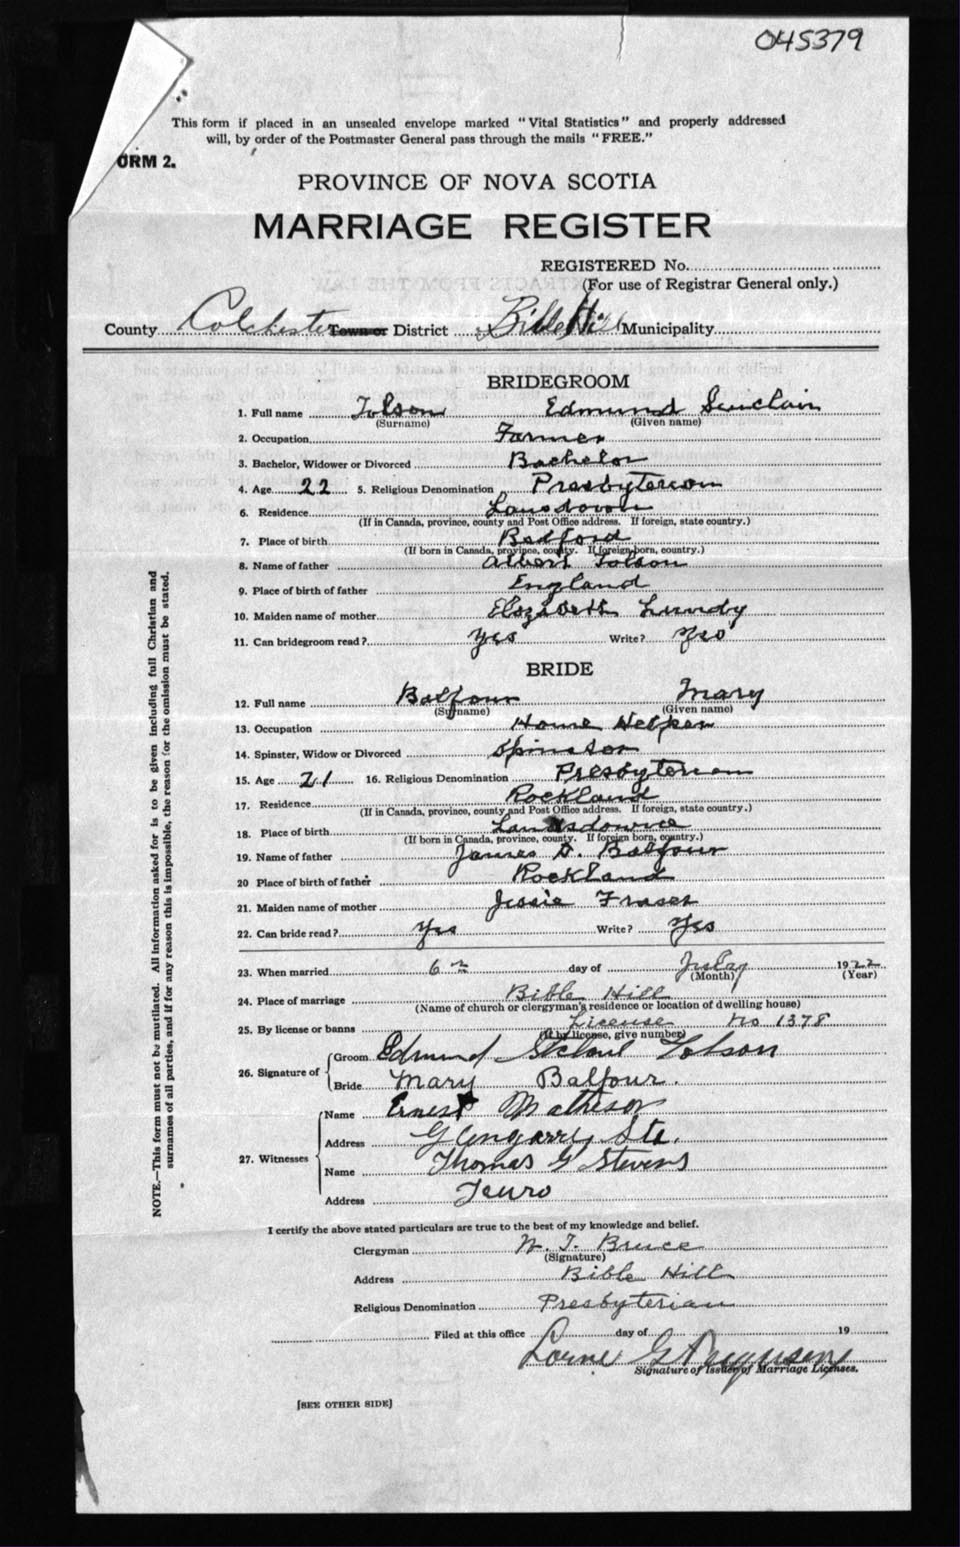 045379
This form if placed in an unsealed envelope marked "Vital Statistics" and properly addressed
will, by order of the Postmaster General pass through the mails "FREE."
ORM 2.
PROVINCE OF NOVA SCOTIA
MARRIAGE REGISTER
REGISTERED No.
(For use of Registrar General only.)
County Colchester Town or District Bible Hill Municipality
BRIDEGROOM
1. Full name Tolson Edmund Sinclair
(Surname) (Given name)
2. Occupation Farmer
3. Bachelor, Widower or Divorced Bachelor
4. Age 22 5. Religious Denomination Presbyterian
6. Residence Lansdown
(If in Canada, province, county and Post Office address. If foreign, state country.)
7. Place of birth Bedford
(If born in Canada, province, county. If foreign born, country.)
8. Name of father Albert Tolson
9. Place of birth of father England
10. Maiden name of mother Elizabeth Lundy
11. Can bridegroom read? Yes Write? Yes
BRIDE
12. Full name Balfour Mary
(Surname) (Given name)
13. Occupation Home Helper
14. Spinster, Widow or Divorced Spinster
15. Age 21 16. Religious Denomination Presbyterian
17. Residence Rockland
(If in Canada, province, county and Post Office address. If foreign, state country.)
18. Place of birth Lansdowne
(If born in Canada, province, county. If foreign born, country.)
19. Name of father James D. Balfour
20 Place of birth of father Rockland
21. Maiden name of mother Jessie Fraser
22. Can bride read? Yes Write? Yes
23. When married 6th day of July 1922
(Month) (Year)
24. Place of marriage Bible Hill
(Name of church or clergyman's residence or location of dwelling house)
25. By license or banns License No 1378
(If by license, give number)
26. Signature of Groom Edmund Tolson
Bride Mary Balfour.
27. Witnesses Name Ernest Matheson
Address Glengarry Sta.
Name Thomas G Stevens
Address Truro
I certify the above stated particulars are true to the best of my knowledge and belief.
Clergyman W. T. Bruce
(Signature)
Address Bible Hill
Religious Denomination Presbyterian
Filed at this office day of 19
Lorne G Ferguson
Signature of Issuer of Marriage Licenses.
[SEE OTHER SIDE]
NOTE.—This form must not be mutilated. All information asked for is to be given including full Christian and
surnames of all parties, and if for any reason this is impossible, the reason for the omission must be stated.